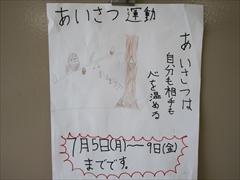 あいさつ運動
あいさつは
自分も相手も
心を温める
7月5日(月)～9日(金)
までです。